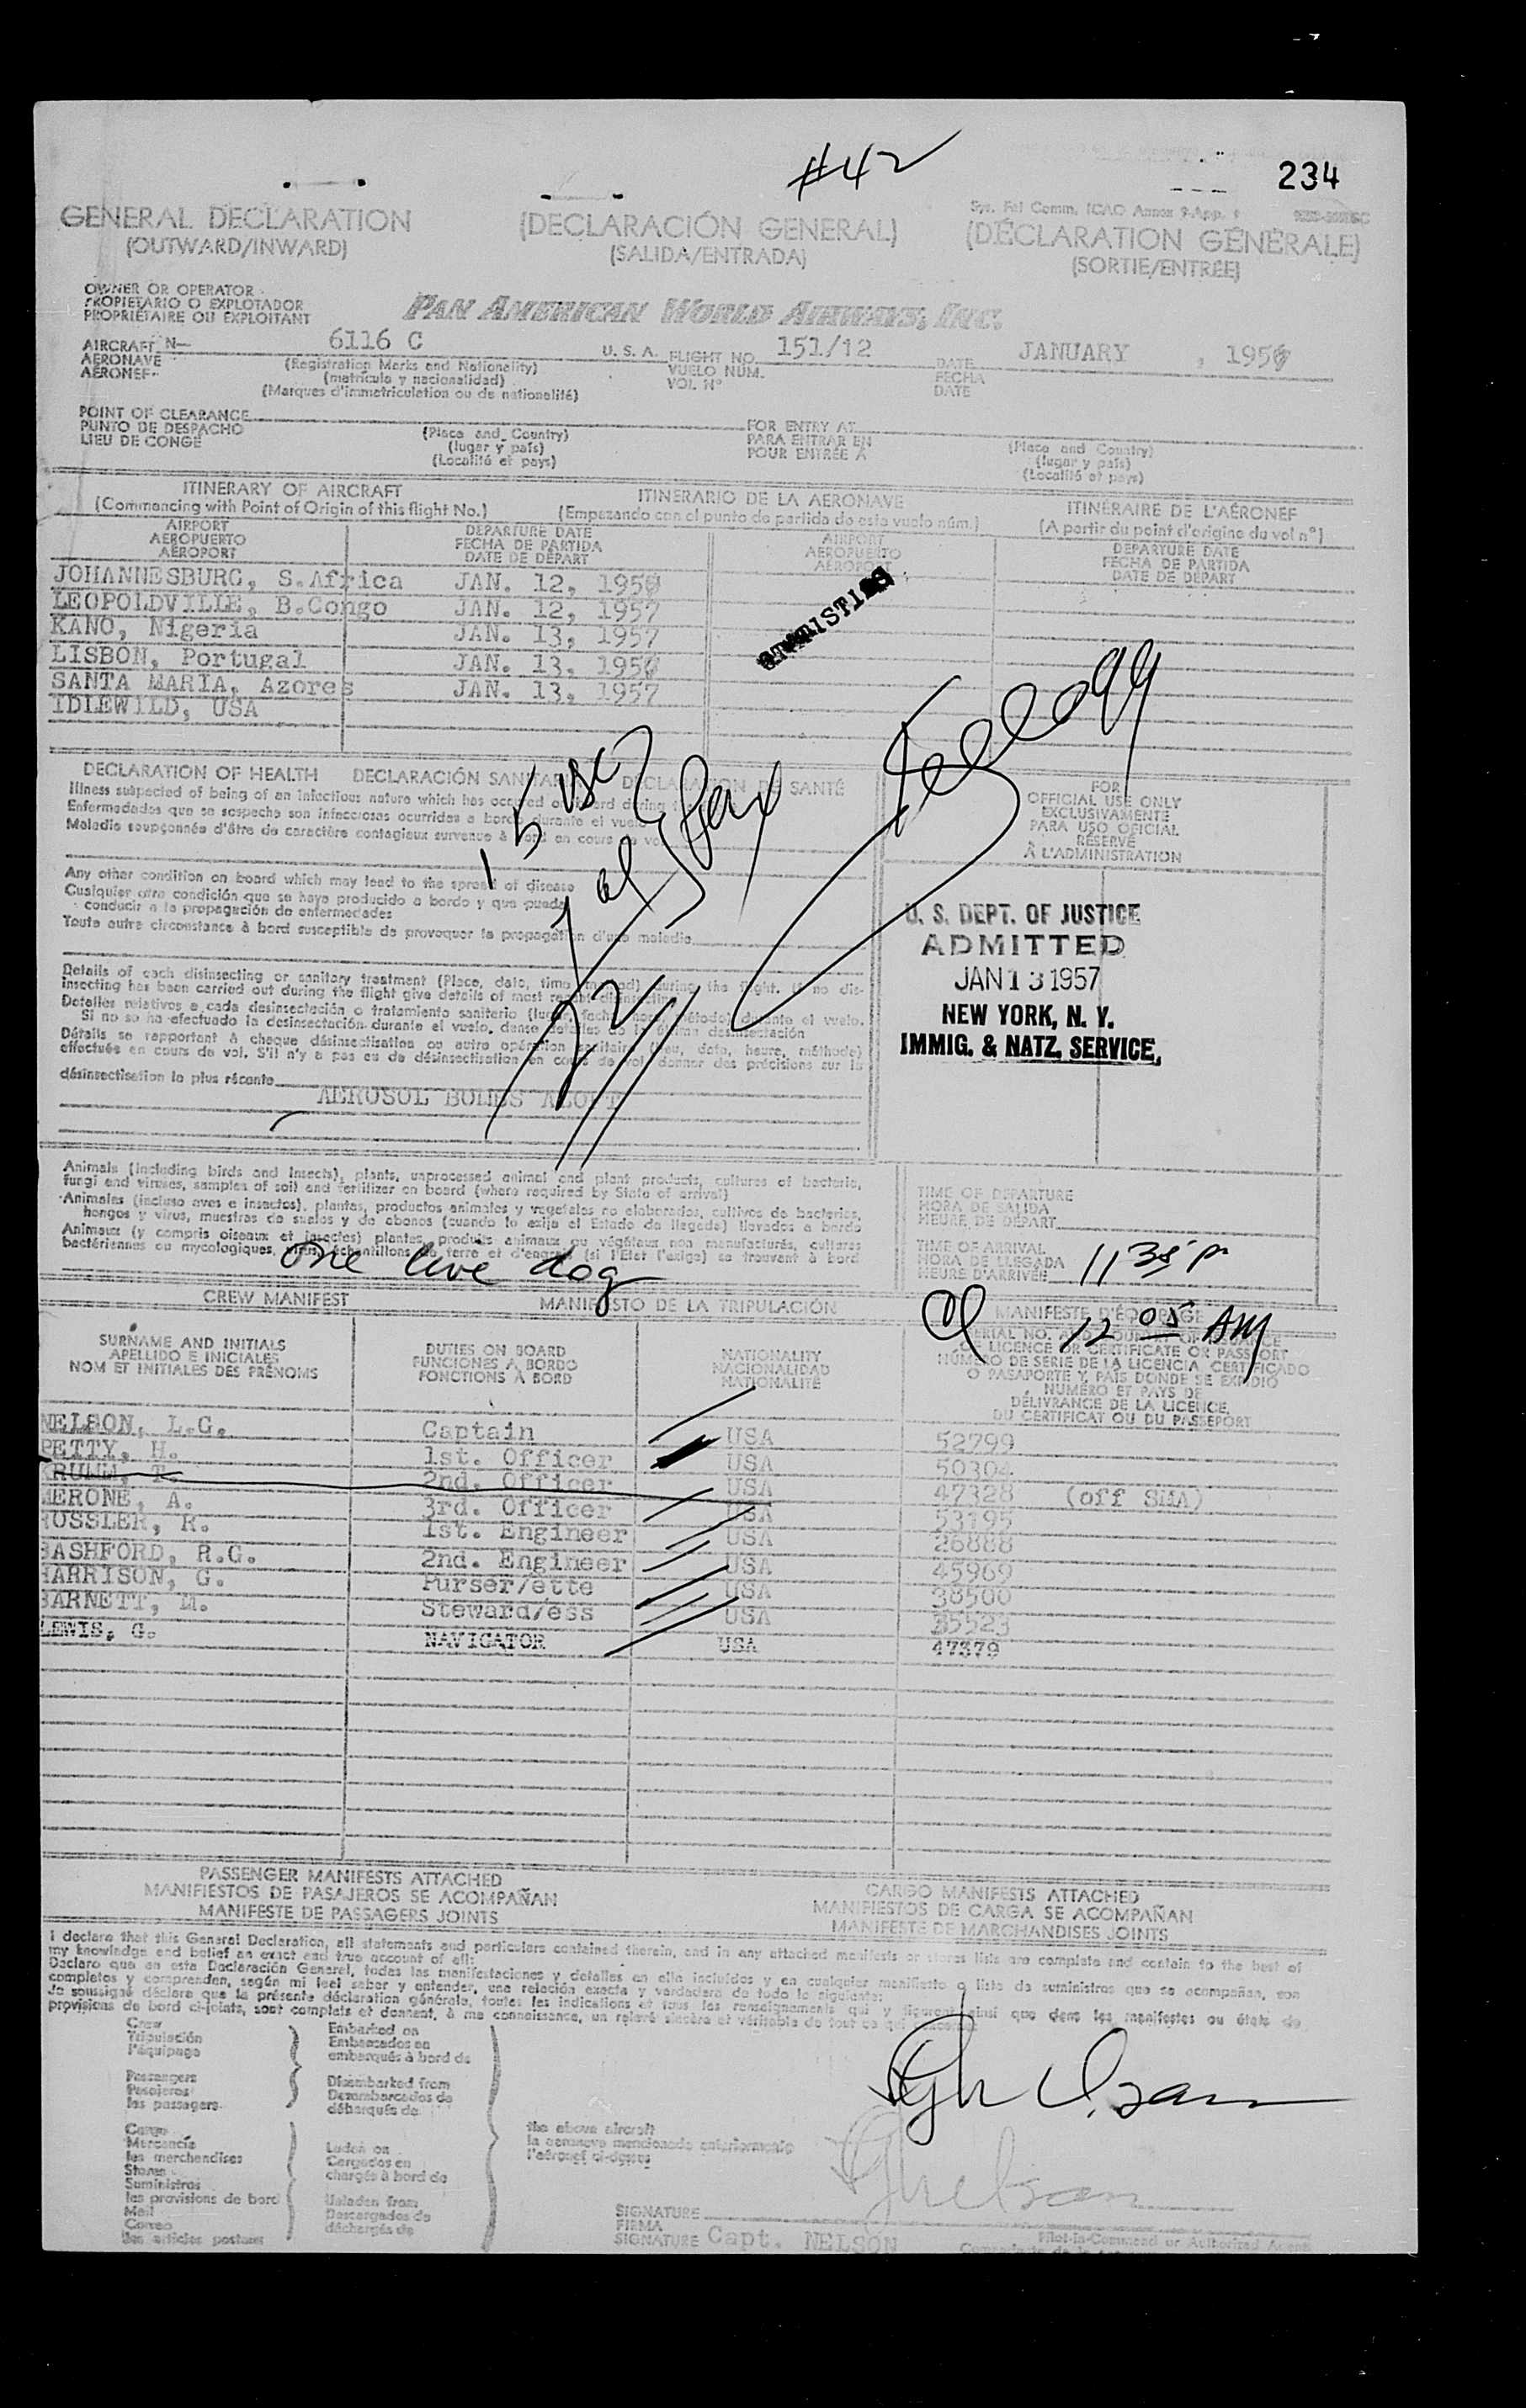 #42
234
GENERAL DECLARATION
(OUTWARD/INWARD)
(DECLARACIÓN GENERAL)
(SALIDA/ENTRADA)
(DÉCLARATION GÉNÉRALE)
(SORTIE/ENTRÉE)
OWNER OR OPERATOR
PROPIETARIO O EXPLOTADOR
PROPRIÉTAIRE OU EXPLOITANT
PAN AMERICAN WORLD AIRWAYS, INC.
AIRCRAFT N— 6116 C U. S. A. FLIGHT NO. 151/12 DATE JANUARY , 1957
AERONAVE (Registration Marks and Nationality) VUELO NÚM. FECHA
AÉRONEF (matrícula y nacionalidad) VOL Nº DATE
(Marques d'immatriculation ou de nationalité)
POINT OF CLEARANCE FOR ENTRY AT
PUNTO DE DESPACHO (Place and Country) PARA ENTRAR EN (Place and Country)
LIEU DE CONGÉ (lugar y país) POUR ENTRÉE À (lugar y país)
(Localité et pays) (Localité et pays)
ITINERARY OF AIRCRAFT ITINERARIO DE LA AERONAVE ITINÉRAIRE DE L'AÉRONEF
(Commencing with Point of Origin of this flight No.) (Empezando con el punto de partida de este vuelo núm.) (A partir du point d'origine du vol nº)
AIRPORT DEPARTURE DATE AIRPORT DEPARTURE DATE
AEROPUERTO FECHA DE PARTIDA AEROPUERTO FECHA DE PARTIDA
AÉROPORT DATE DE DÉPART AÉROPORT DATE DE DÉPART
JOHANNESBURG, S.Africa JAN. 12, 1957
LEOPOLDVILLE, B.Congo JAN. 12, 1957
KANO, Nigeria JAN. 13, 1957
LISBON, Portugal JAN. 13, 1957
SANTA MARIA, Azores JAN. 13, 1957
IDLEWILD, USA
DECLARATION OF HEALTH DECLARACIÓN SANITARIA DÉCLARATION DE SANTÉ
Illness suspected of being of an infectious nature which has occurred on board during
Enfermedades que se sospecha son infecciosas ocurridas a bordo durante el vuelo
Maladie soupçonnée d'être de caractère contagieux survenue à bord en cours de vol
Any other condition on board which may lead to the spread of disease
Cualquier otra condición que se haya producido a bordo y que pueda
conducir a la propagación de enfermedades
Toute autre circonstance à bord susceptible de provoquer la propagation d'une maladie
Details of each disinsecting or sanitary treatment (Place, date, time, method) during the flight. If no dis-
insecting has been carried out during the flight give details of most recent disinsecting
Detalles relativos a cada desinsectación o tratamiento sanitario (lugar, fecha, hora, método) durante el vuelo.
Si no se ha efectuado la desinsectación durante el vuelo, dense detalles de la última desinsectación
Détails se rapportant à chaque désinsectisation ou autre opération sanitaire (lieu, date, heure, méthode)
effectués en cours de vol. S'il n'y a pas eu de désinsectisation en cours de vol donner des précisions sur la
désinsectisation la plus récente
AEROSOL BOMBS ALOFT
FOR
OFFICIAL USE ONLY
EXCLUSIVAMENTE
PARA USO OFICIAL
RÉSERVÉ
À L'ADMINISTRATION
U. S. DEPT. OF JUSTICE
ADMITTED
JAN 13 1957
NEW YORK, N. Y.
IMMIG. & NATZ. SERVICE,
Animals (including birds and insects), plants, unprocessed animal and plant products, cultures of bacteria,
fungi and viruses, samples of soil and fertilizer on board (where required by State of arrival)
Animales (incluso aves e insectos), plantas, productos animales y vegetales no elaborados, cultivos de bacterias,
hongos y virus, muestras de suelos y de abonos (cuando lo exija el Estado de llegada) llevados a bordo
Animaux (y compris oiseaux et insectes) plantes, produits animaux ou végétaux non manufacturés, cultures
bactériennes ou mycologiques, virus, échantillons de terre et d'engrais (si l'Etat l'exige) se trouvant à bord
One live dog
TIME OF DEPARTURE
HORA DE SALIDA
HEURE DE DÉPART
TIME OF ARRIVAL
HORA DE LLEGADA 11 35 p
HEURE D'ARRIVÉE
12 05 AM
CREW MANIFEST MANIFIESTO DE LA TRIPULACIÓN MANIFESTE D'ÉQUIPAGE
SURNAME AND INITIALS DUTIES ON BOARD NATIONALITY
APELLIDO E INICIALES FUNCIONES A BORDO NACIONALIDAD
NOM ET INITIALES DES PRÉNOMS FONCTIONS À BORD NATIONALITÉ
LICENCE OR CERTIFICATE OR PASSPORT
NÚMERO DE SERIE DE LA LICENCIA CERTIFICADO
O PASAPORTE Y PAÍS DONDE SE EXPIDIÓ
NUMÉRO ET PAYS DE
DÉLIVRANCE DE LA LICENCE,
DU CERTIFICAT OU DU PASSEPORT
NELSON, L.G. Captain USA 52799
PETTY, H. 1st. Officer USA 50304
KRULL, T. 2nd. Officer USA 47328 (off SMA)
MERONE, A. 3rd. Officer USA 53195
RUSSLER, R. 1st. Engineer USA 26888
BASHFORD, R.G. 2nd. Engineer USA 45969
HARRISON, G. Purser/ette USA 38500
BARNETT, M. Steward/ess USA 35523
LEWIS, G. NAVIGATOR USA 47379
PASSENGER MANIFESTS ATTACHED CARGO MANIFESTS ATTACHED
MANIFIESTOS DE PASAJEROS SE ACOMPAÑAN MANIFIESTOS DE CARGA SE ACOMPAÑAN
MANIFESTE DE PASSAGERS JOINTS MANIFESTE DE MARCHANDISES JOINTS
I declare that this General Declaration, all statements and particulars contained therein, and in any attached manifests or stores lists are complete and contain to the best of
my knowledge and belief an exact and true account of all:
Declaro que en esta Declaración General, todas las manifestaciones y detalles en ella incluidos y en cualquier manifiesto o lista de suministros que se acompañan, son
completos y comprenden, según mi leal saber y entender, una relación exacta y verdadera de todo lo siguiente:
Je soussigné déclare que la présente déclaration générale, toutes les indications et tous les renseignements qui y figurent ainsi que dans les manifestes ou états de
provisions de bord ci-joints, sont complets et donnent, à ma connaissance, un relevé sincère et véritable de tout ce qui
Crew Embarked on
Tripulación Embarcados en
l'équipage embarqués à bord de
Passengers Disembarked from
Pasajeros Desembarcados de
les passagers débarqués de
Cargo the above aircraft
Mercancía Laden on la aeronave mencionada anteriormente
les merchandises Cargados en l'aéronef ci-dessus
Stores chargés à bord de
Suministros
les provisions de bord Unladen from
Mail Descargados de
Correo déchargés de
les articles postaux
SIGNATURE
FIRMA
SIGNATURE Capt. NELSON Pilot-in-Command or Authorized Agent